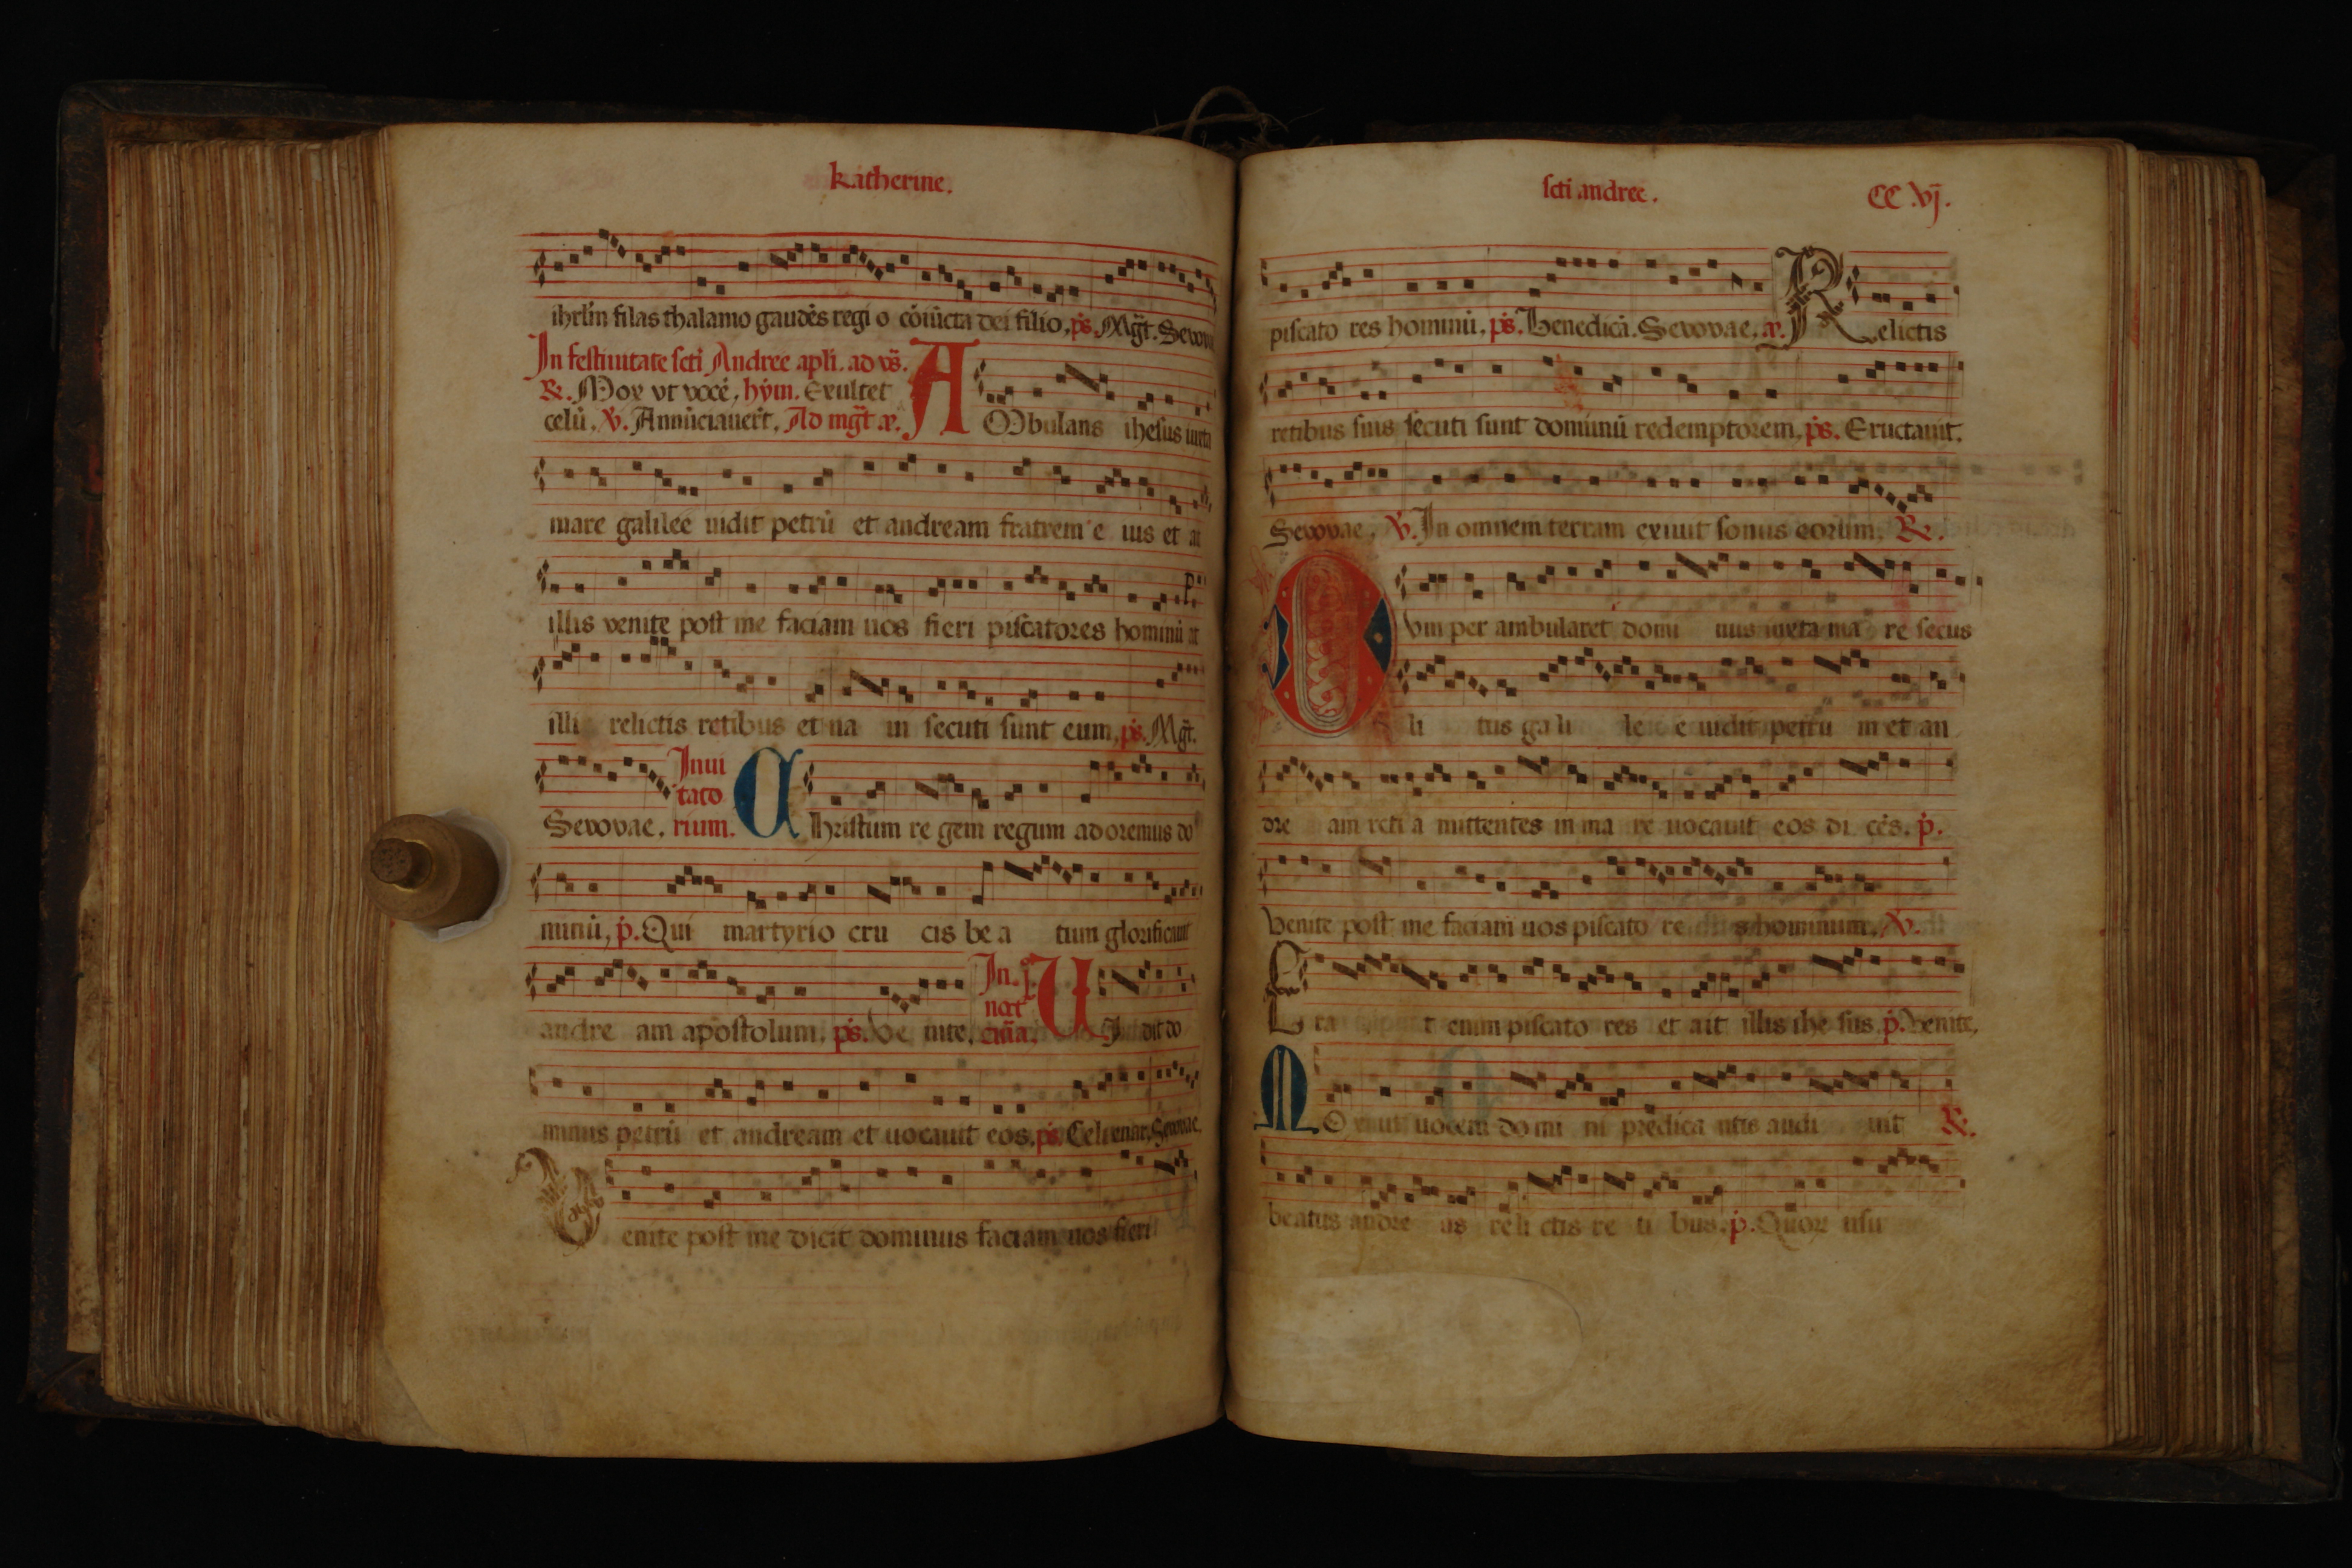 katherine.
ihrl̄m filas thalamo gaudēs regi o cōiūcta dei filio. ps. Mḡt. Seuouae
In festiuitate scti Andree apli. ad vs̄.
R. Mox vt vocē. hym. Exultet
celū. V. Annūciauer̄t. Ad mḡt a.
AMbulans ihesus iuxta
mare galilee uidit petrū et andream fratrem e ius et ait
illis venite post me faciam uos fieri piscatores hominū at
illi relictis retibus et na ui secuti sunt eum. ps. Mḡt.
Seuouae. Inui tato rium. CHristum re gem regum adoremus do
minū. p. Qui martyrio cru cis be a tum glorificauit
andre am apostolum. ps. Ve nite. In. noct VIdit do
minus petrū et andream et uocauit eos. ps. Celi enar. Seuouae.
Venite post me dicit dominus faciam uos fieri
scti andree. CC.vj.
piscato res hominū. ps. Benedicā. Seuouae. a. Relictis
retibus suis secuti sunt dominū redemptorem. ps. Eructauit.
Seuouae. V. In omnem terram exiuit sonus eorum. R.
Dum per ambularet domi nus iuxta ma re secus
li tus ga li le e uidit petru m et an
dre am reti a mittentes in ma re uocauit eos di cēs. p.
Venite post me faciam uos piscato re s hominum. V.
Era t enim piscato res et ait illis ihe sus. p. Venite.
MOx ut uocem do mi ni predica ntis audi uit R.
beatus andre as reli ctis re ti bus. p. Quor usu